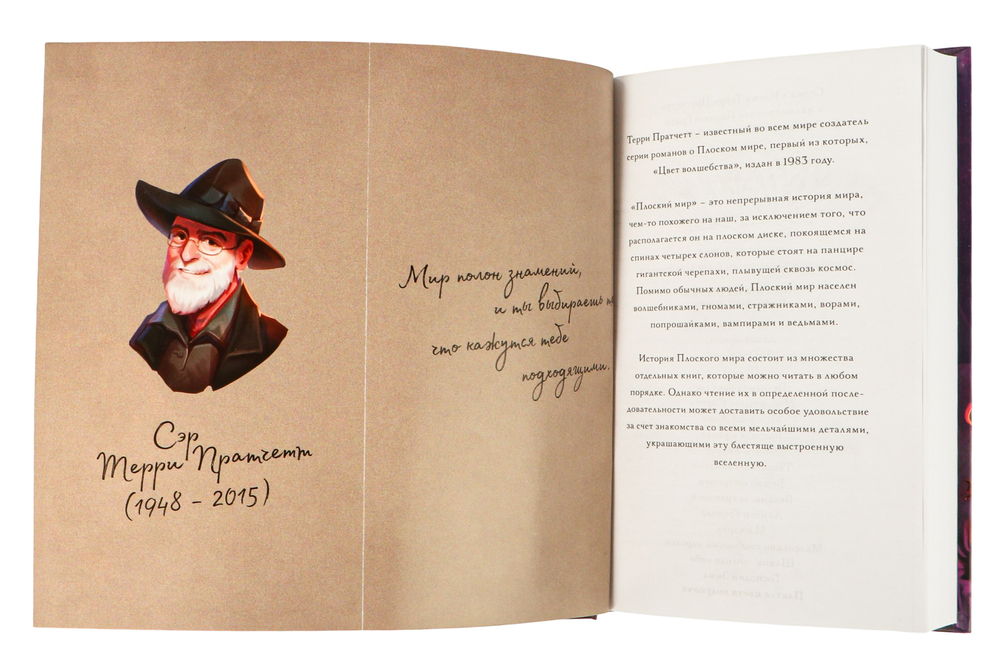 Сэр
Терри Пратчетт
(1948 – 2015)
Мир полон знамений,
и ты выбираешь
что кажутся тебе
подходящими.
Терри Пратчетт – известный во всем мире создатель
серии романов о Плоском мире, первый из которых,
«Цвет волшебства», издан в 1983 году.
«Плоский мир» – это непрерывная история мира,
чем-то похожего на наш, за исключением того, что
располагается он на плоском диске, покоящемся на
спинах четырех слонов, которые стоят на панцире
гигантской черепахи, плывущей сквозь космос.
Помимо обычных людей, Плоский мир населен
волшебниками, гномами, стражниками, ворами,
попрошайками, вампирами и ведьмами.
История Плоского мира состоит из множества
отдельных книг, которые можно читать в любом
порядке. Однако чтение их в определенной после-
довательности может доставить особое удовольствие
за счет знакомства со всеми мельчайшими деталями,
украшающими эту блестяще выстроенную
вселенную.